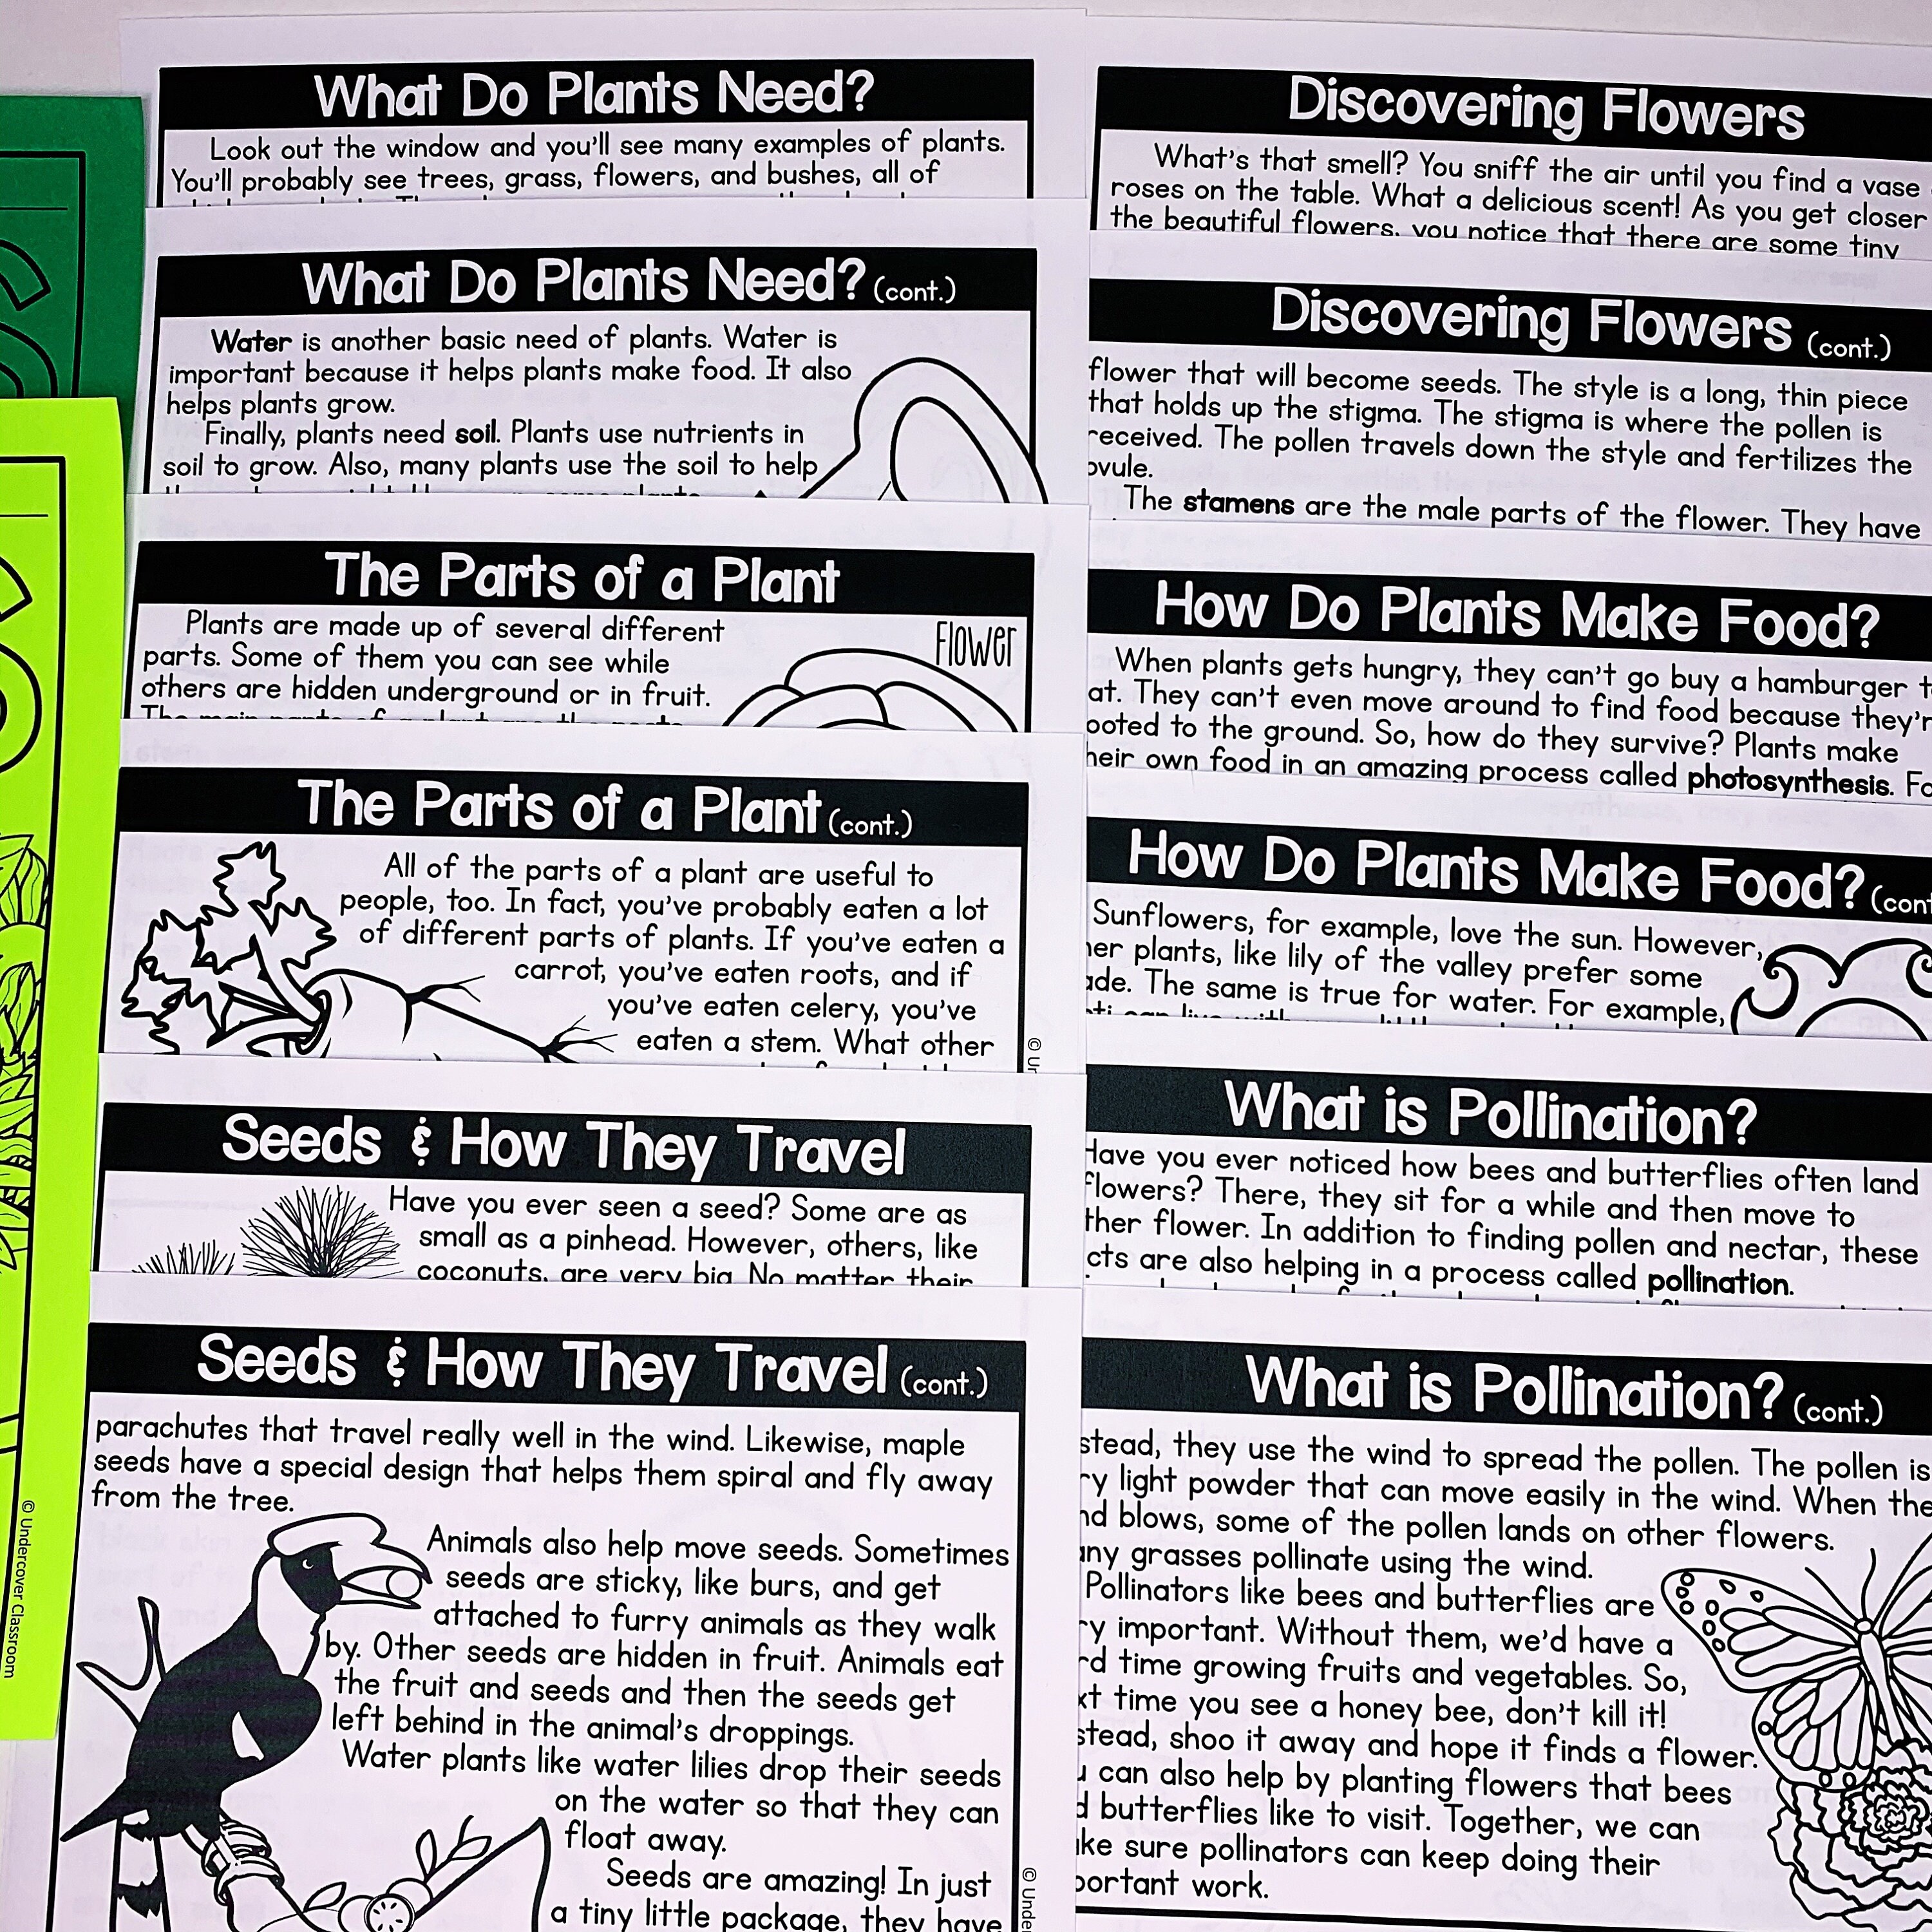 What Do Plants Need?
Look out the window and you'll see many examples of plants.
You'll probably see trees, grass, flowers, and bushes, all of
What Do Plants Need? (cont.)
Water is another basic need of plants. Water is
important because it helps plants make food. It also
helps plants grow.
Finally, plants need soil. Plants use nutrients in
soil to grow. Also, many plants use the soil to help
The Parts of a Plant
Plants are made up of several different
parts. Some of them you can see while
others are hidden underground or in fruit.
The main parts of a plant are the roots
Flower
The Parts of a Plant (cont.)
All of the parts of a plant are useful to
people, too. In fact, you've probably eaten a lot
of different parts of plants. If you've eaten a
carrot, you've eaten roots, and if
you've eaten celery, you've
eaten a stem. What other
Seeds & How They Travel
Have you ever seen a seed? Some are as
small as a pinhead. However, others, like
coconuts, are very big. No matter their
Seeds & How They Travel (cont.)
parachutes that travel really well in the wind. Likewise, maple
seeds have a special design that helps them spiral and fly away
from the tree.
Animals also help move seeds. Sometimes
seeds are sticky, like burs, and get
attached to furry animals as they walk
by. Other seeds are hidden in fruit. Animals eat
the fruit and seeds and then the seeds get
left behind in the animal's droppings.
Water plants like water lilies drop their seeds
on the water so that they can
float away.
Seeds are amazing! In just
a tiny little package, they have
© Undercover Classroom
Discovering Flowers
What's that smell? You sniff the air until you find a vase
roses on the table. What a delicious scent! As you get closer
the beautiful flowers, you notice that there are some tiny
Discovering Flowers (cont.)
flower that will become seeds. The style is a long, thin piece
that holds up the stigma. The stigma is where the pollen is
received. The pollen travels down the style and fertilizes the
ovule.
The stamens are the male parts of the flower. They have
How Do Plants Make Food?
When plants gets hungry, they can't go buy a hamburger t
at. They can't even move around to find food because they'r
ooted to the ground. So, how do they survive? Plants make
heir own food in an amazing process called photosynthesis. Fo
How Do Plants Make Food? (cont
Sunflowers, for example, love the sun. However,
her plants, like lily of the valley prefer some
ade. The same is true for water. For example,
What is Pollination?
Have you ever noticed how bees and butterflies often land
flowers? There, they sit for a while and then move to
ther flower. In addition to finding pollen and nectar, these
cts are also helping in a process called pollination.
What is Pollination? (cont.)
stead, they use the wind to spread the pollen. The pollen is
ry light powder that can move easily in the wind. When the
nd blows, some of the pollen lands on other flowers.
any grasses pollinate using the wind.
Pollinators like bees and butterflies are
ry important. Without them, we'd have a
rd time growing fruits and vegetables. So,
xt time you see a honey bee, don't kill it!
stead, shoo it away and hope it finds a flower.
u can also help by planting flowers that bees
d butterflies like to visit. Together, we can
ke sure pollinators can keep doing their
portant work.